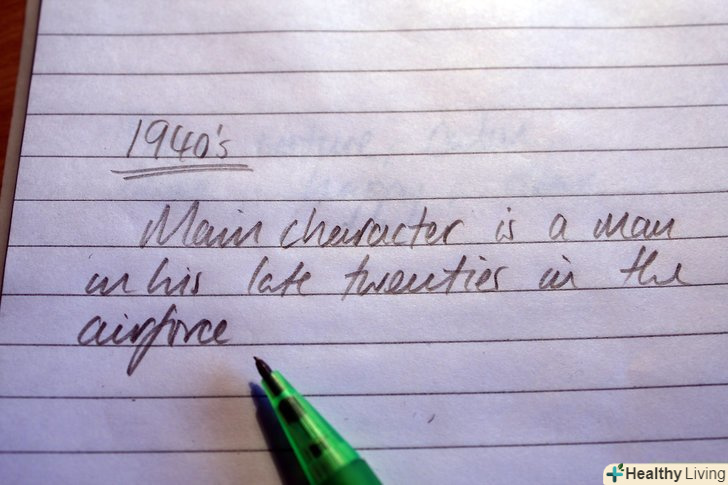 1940's
Main character is a man
in his late twenties in the
airforce
Healthy Living